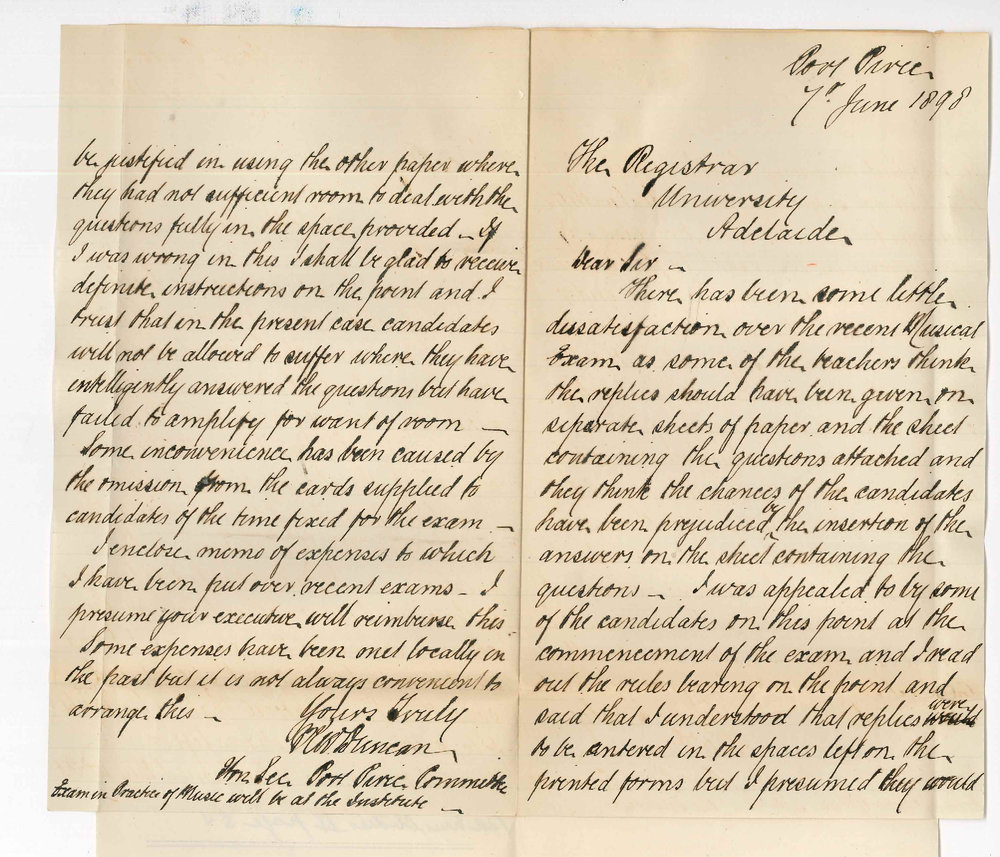 Port Pirie
7th June 1898
The Registrar
University
Adelaide
Dear Sir -
There has been some little
dissatisfaction over the recent Musical
Exam as some of the teachers think
the replies should have been given on
separate sheets of paper and the sheet
containing the questions attached and
they think the chances of the candidates
have been prejudiced by the insertion of the
answers on the sheet containing the
questions - I was appealed to by some
of the candidates on this point at the
commencement of the exam and I read
out the rules bearing on the point and
said that I understood that replies were would
to be entered in the spaces left on the
printed forms but I presumed they would
be justified in using the other paper where
they had not sufficient room to deal with the
questions fully in the space provided - If
I was wrong in this I shall be glad to receive
definite instructions on the point and I
trust that in the present case candidates
will not be allowed to suffer where they have
intelligently answered the questions but have
failed to amplify for want of room -
Some inconvenience has been caused by
the omission from the cards supplied to
candidates of the time fixed for the exam -
I enclose memo of expenses to which
I have been put over recent exams - I
presume your executive will reimburse this
Some expenses have been met locally in
the past but it is not always convenient to
arrange this -
Yours truly
Duncan
Hon. Sec Port Pirie Committee
Exam in Practice of Music will be at the Institute -